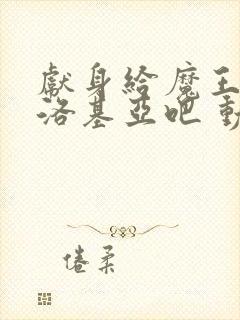 獻身給魔王
洛基亞吧 動
倦柔